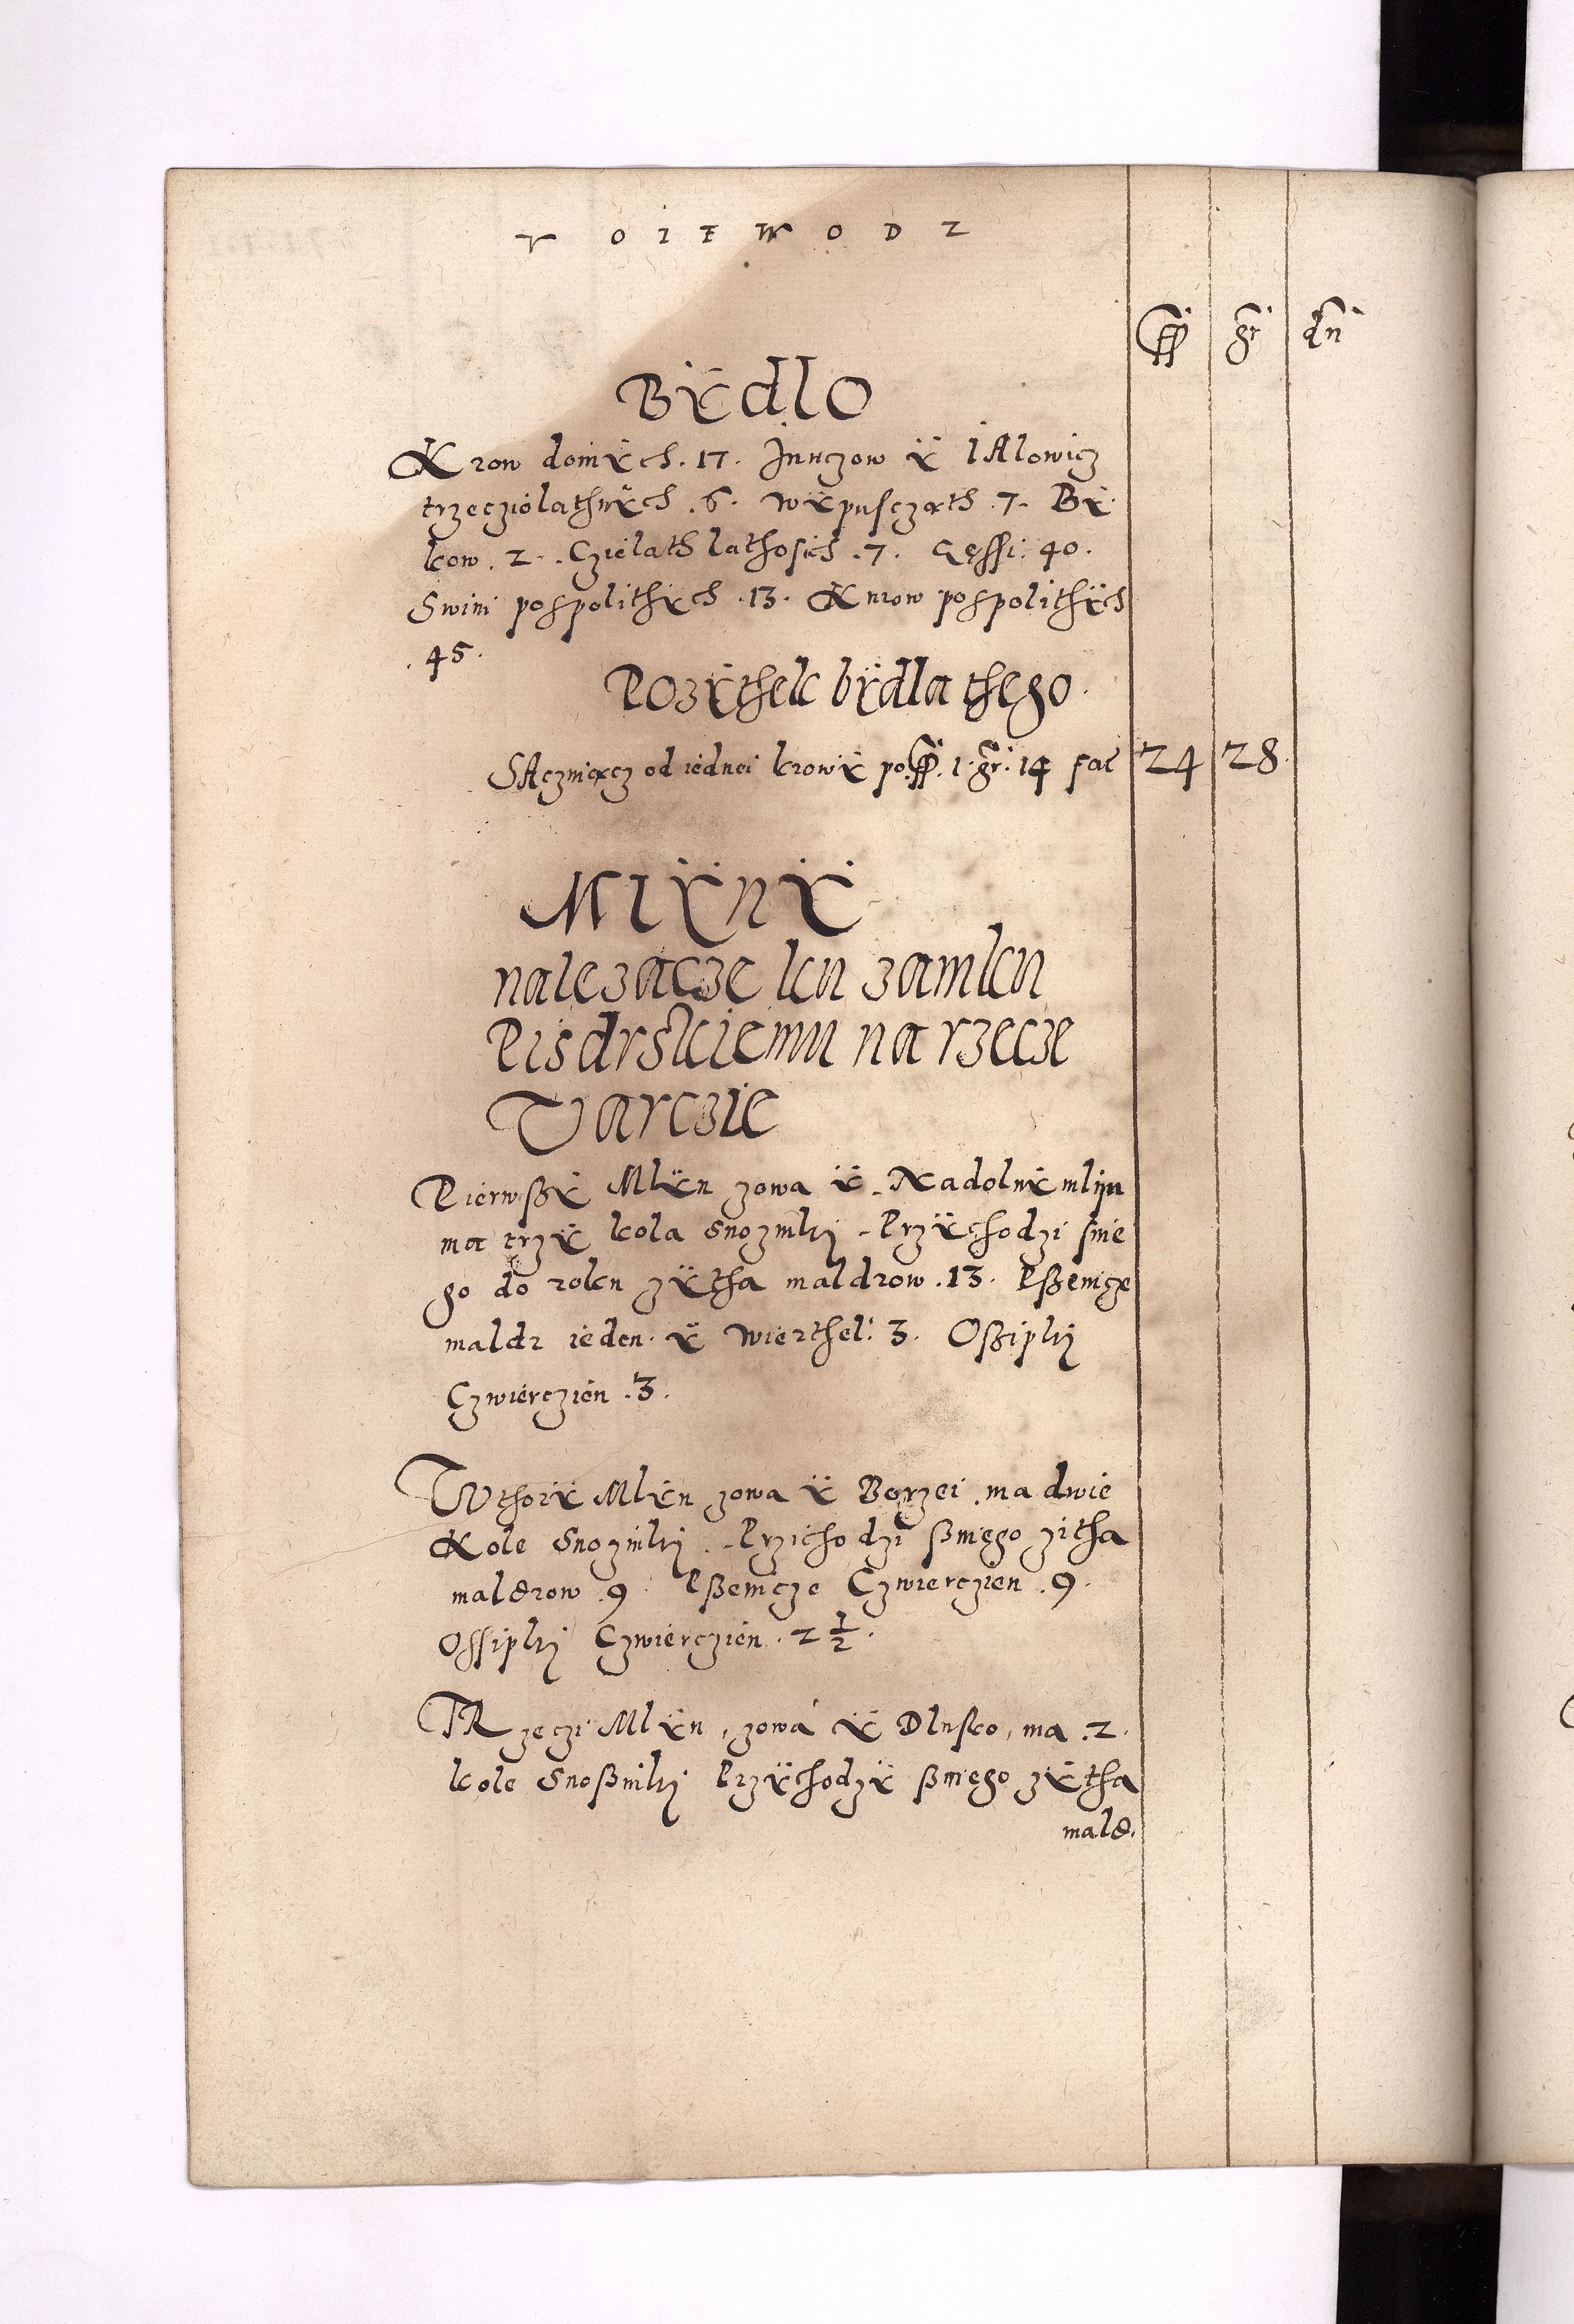 V O I E W O D Z
fl gr dn
Bÿdlo
Krow doinÿch . 17 . Junczow ÿ iAlowicz
trzecziolathnÿch . 6 . Wÿpusczath . 7 . Bÿ
kow . 2 . Czielath lathosich . 7 . Gęssi . 40 .
Swini pospolithÿch . 13 . Knrow pospolithÿch
. 45 .
Pozÿthek bÿdla thego .
SAczuiącz od iednei krowÿ po fl . 1 . gr . 14 fac 24 28
Mlÿnÿ
nalezacze ku zamku
Pisdrskiemu na rzecze
Varczie
Pierwssÿ Mlÿn zowa ÿ Nadolnÿ mlijn
ma trzÿ kola Snozinki Przÿchodzi snie
go do roku zÿtha maldrow . 13 . Pssenicze
maldr ieden ÿ wierthel . 3 . Ossipki
Czwierczien . 3 .
WthorÿMlÿn zowa ÿ Borzei . ma dwie
Kole Snozinki . Przichodzi ssniego zitha
maldrow . 9 . Pssenicze Czwierczien . 9 .
Ossipki Czwierczien . 2 1/2 .
TRzeczi Mlÿn , zowa ÿ Dlusko , ma . 2 .
kole Snossinki Przÿchodzÿ ssniego zÿtha
mald .